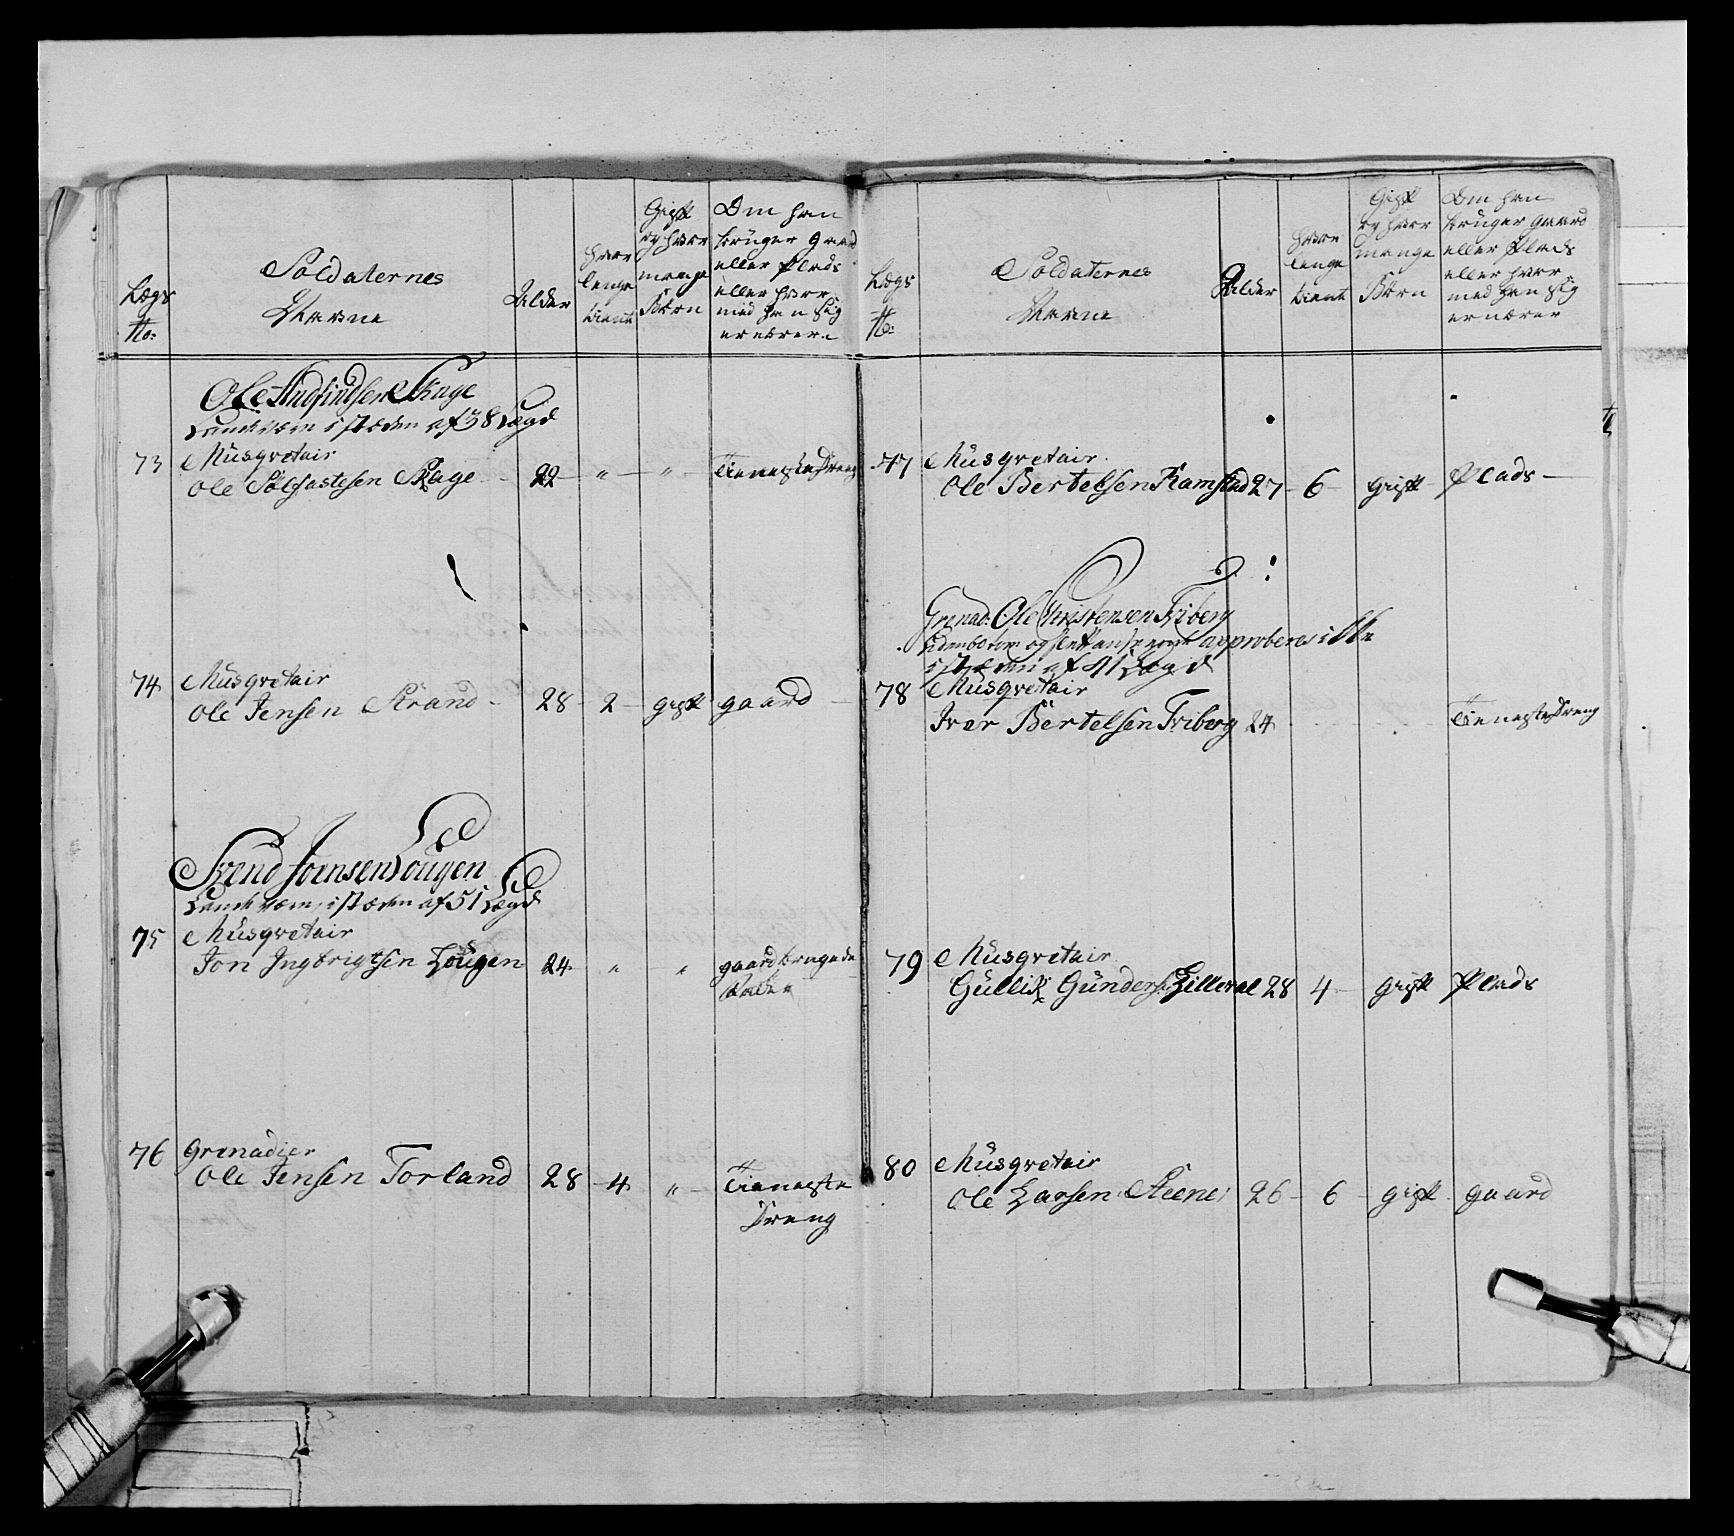 Lægs
No:
Soldaternes
Navne
Alder
hvor
lenge
tient
Gift
og hvor
mange
Børn
Om han
bruger Gaard
eller Plads
eller hvor
med han sig
ernærer
Ole Andfindsen Skage
Landværn i stæden af 38 Lægd
73 Musqvetair
Ole Solfastesen Skage 22 " " Tieneste Dreng
74 Musqvetair
Ole Jensen Strand 28 2 gift gaard
Svend Joensen Lougen
Landværn i stæden af 51 Lægd
75 Musqvetair
Jon Ingbrigtsen Lougen 24 " " gaardbrugende
76 Grenadier
Ole Jensen Torland 28 4 " Tieneste
Dreng
Lægs
No:
Soldaternes
Navne
Alder
hvor
lenge
tient
Gift
og hvor
mange
Børn
Om han
bruger gaard
eller Plads
eller hvor
med han sig
ernærer
77 Musqvetair
Ole Bertelsen Ramstad 27 6 gift Plads
Grenad. Ole Christensen Friberg
approberes ikke
i stæden af 41 Lægd
78 Musqvetair
Iver Bertelsen Friberg 24 Tieneste Dreng
79 Musqvetair
Gullik Gunders. Lilleval 28 4 gift Plads
80 Musqvetair
Ole Larsen Steene 26 6 gift gaard